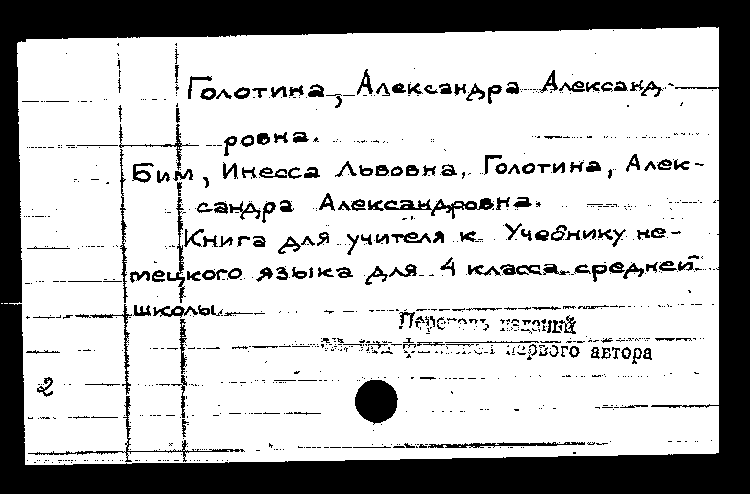 Голотина, Александра Александ-
ровна.
Бим, Инесса Львовна, Голотина, Алек-
сандра Александровна.
Книга для учителя к Учебнику не-
мецкого языка для 4 класса средней
школы.
Перечень изданий
см. под фамилией первого автора
2